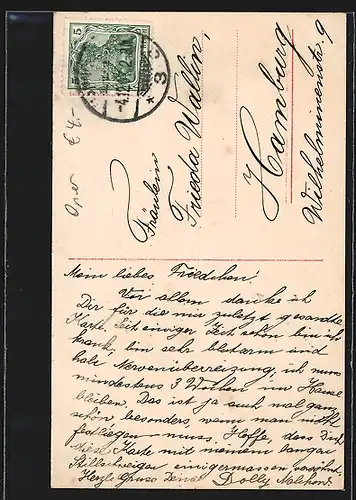 5
* 3
Oper € 4,-
Fräulein
Frieda Wallin,
Hamburg
Wilhelminenstr. 9
Mein liebes Friedchen!
Vor allem danke ich
Dir für die mir zuletzt gesandte
Karte. Seit einiger Zeit schon bin ich
krank, bin sehr blutarm und
hab Nervenüberreizung, ich muss
mindestens 3 Wochen im Hause
bleiben. Das ist ja auch mal ganz
schön besonders, wenn man nicht
festliegen muss. Hoffe, dass Dich
diese Karte mit meinem langen
Stillschweigen einigermassen versöhnt.
Herzl. Gruss Deine Dolly